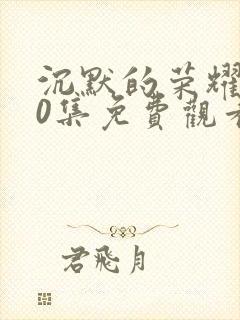 沉默的荣耀
0集免費觀看
君飛月